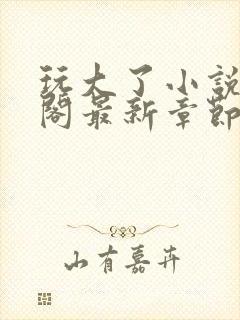 玩大了小說
閣最新章節
山有嘉卉